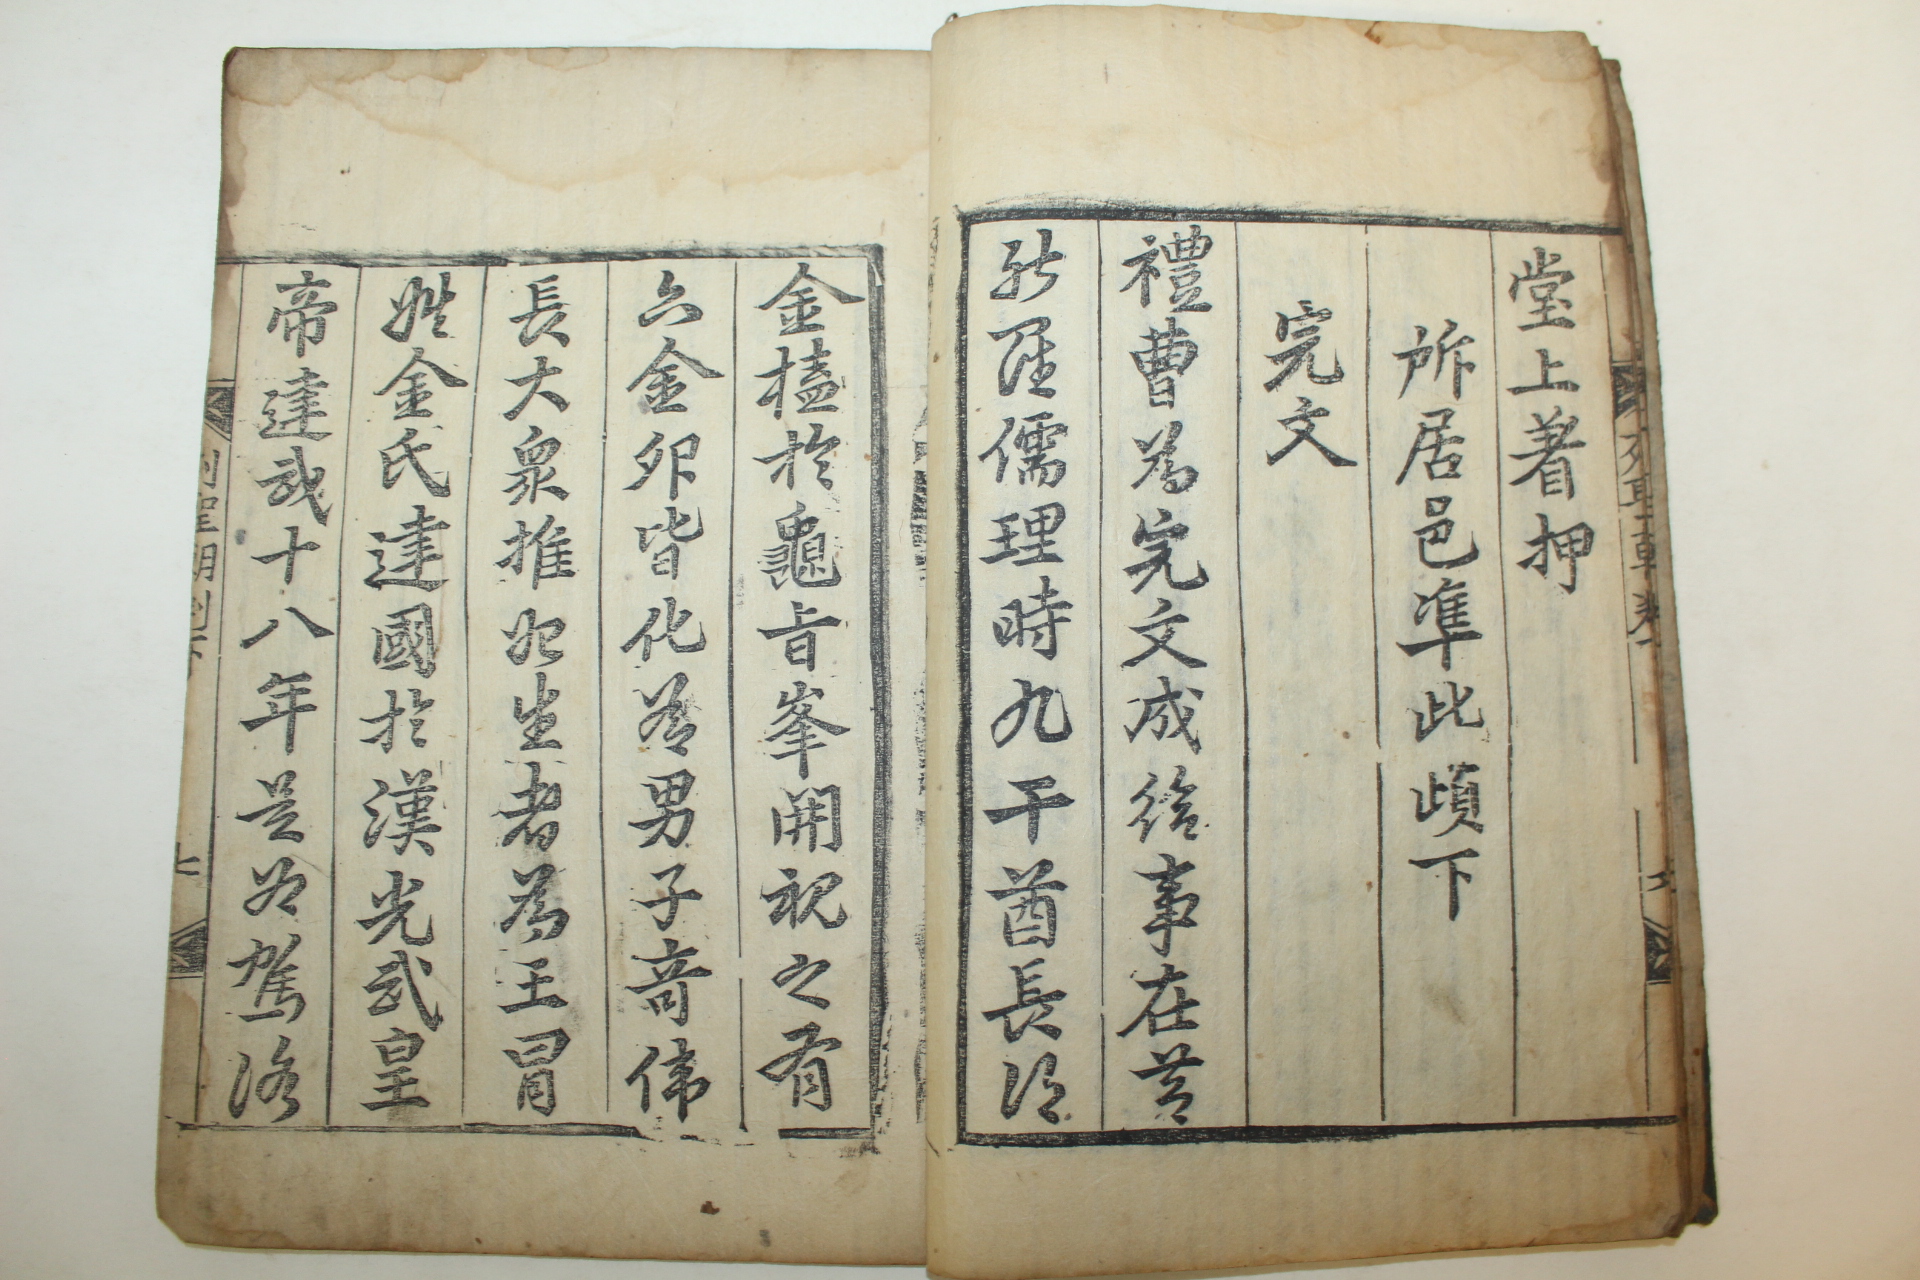 堂上着押
所居邑準此頉下
完文
禮曹為完文成給事在昔
新羅儒理時九干酋長得
金榼於龜旨峯開視之有
六金卵皆化爲男子奇偉
長大衆推始生者為王冒
姓金氏建國於漢光武皇
帝建武十八年是爲駕洛